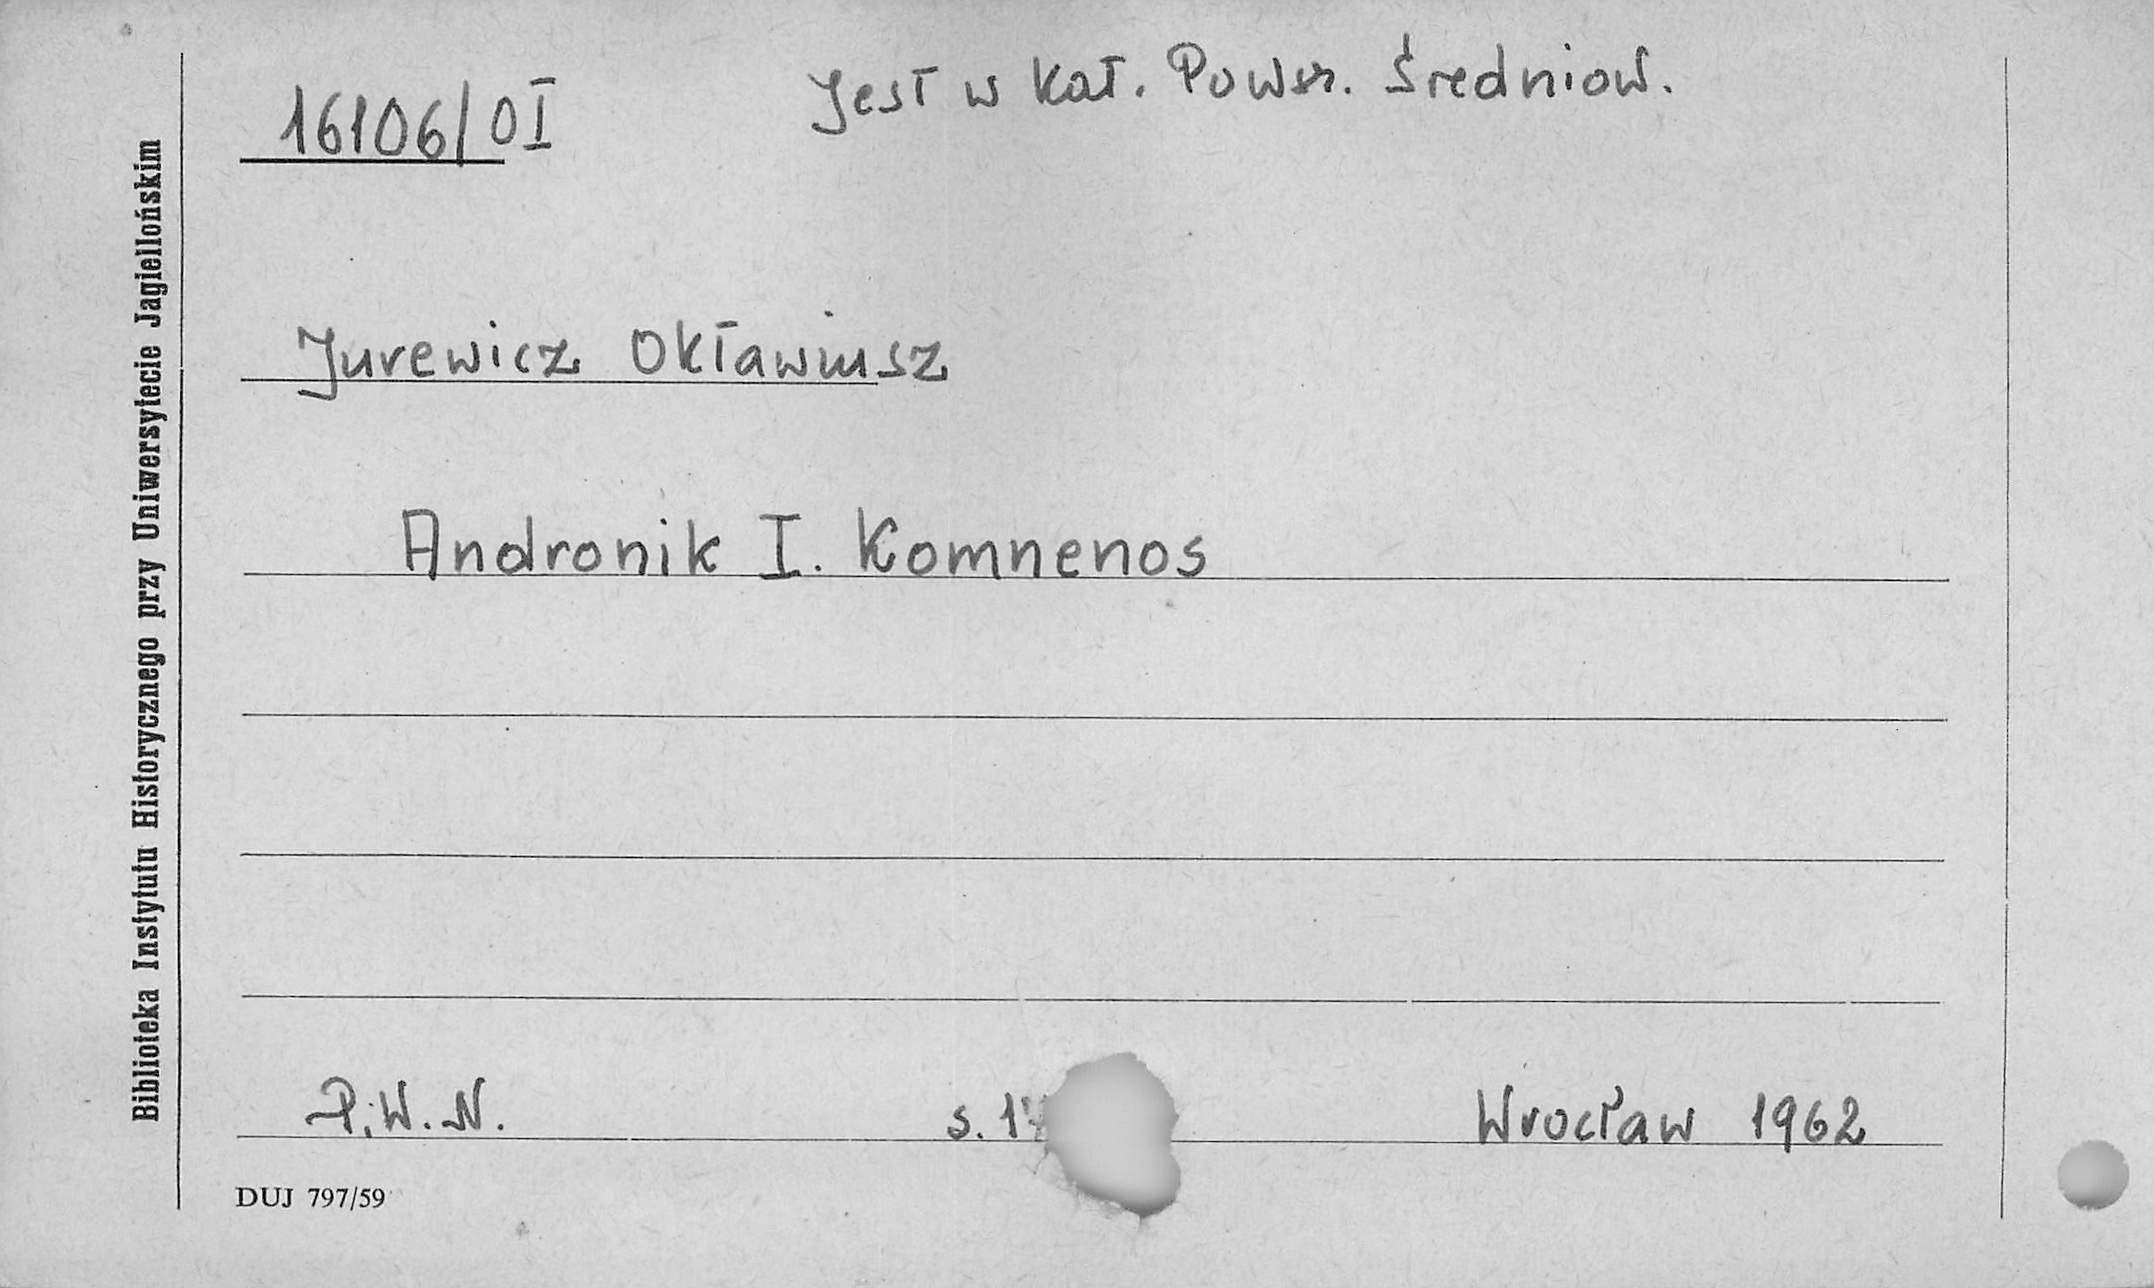 16106/OI
Jest w kat. Powsz. Średniow.
Jurewicz Oktawiusz
Andronik I. Komnenos
P.W.N. s. Wrocław 1962
DUJ 797/59
Biblioteka Instytutu Historycznego przy Uniwersytecie Jagiellońskim